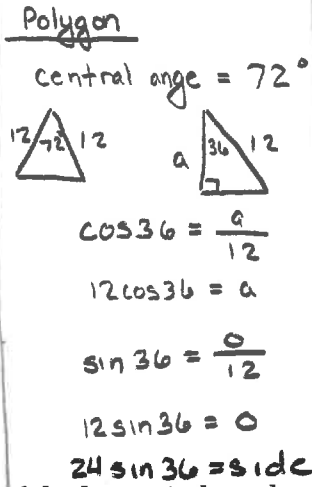 Polygon
central ange = 72°
12 72 12
a 36 12
cos36 = a/12
12cos36 = a
sin 36 = o/12
12sin36 = o
24 sin 36 = side